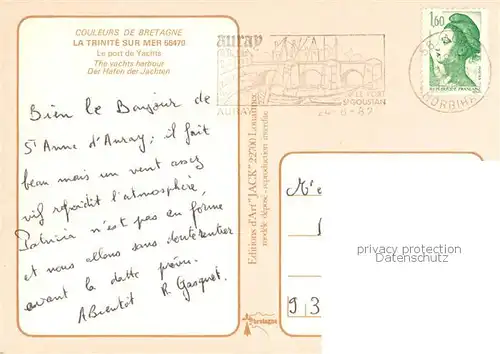 COULEURS DE BRETAGNE
LA TRINITÉ SUR MER 56470
Le port de Yachts
The yachts harbour
Der Hafen der Jachten
Bien le Bonjour de
St Anne d'Auray : il fait
beau mais un vent assez
vif refroidit l'atmosphère,
Patricia n'est pas en forme
et nous allons sans doute rentrer
avant la datte prévu.
A Bientôt R. Gasquet.
auray
LE PORT
ST GOUSTAN
AURAY
6-82
56
MORBIHAN
1,60
REPUBLIQUE FRANÇAISE
Editions d'Art "JACK" 22700 Louannec
modèle déposé - reproduction interdite
bretagne
M'e
93
privacy protection
DOMAINS4MORE